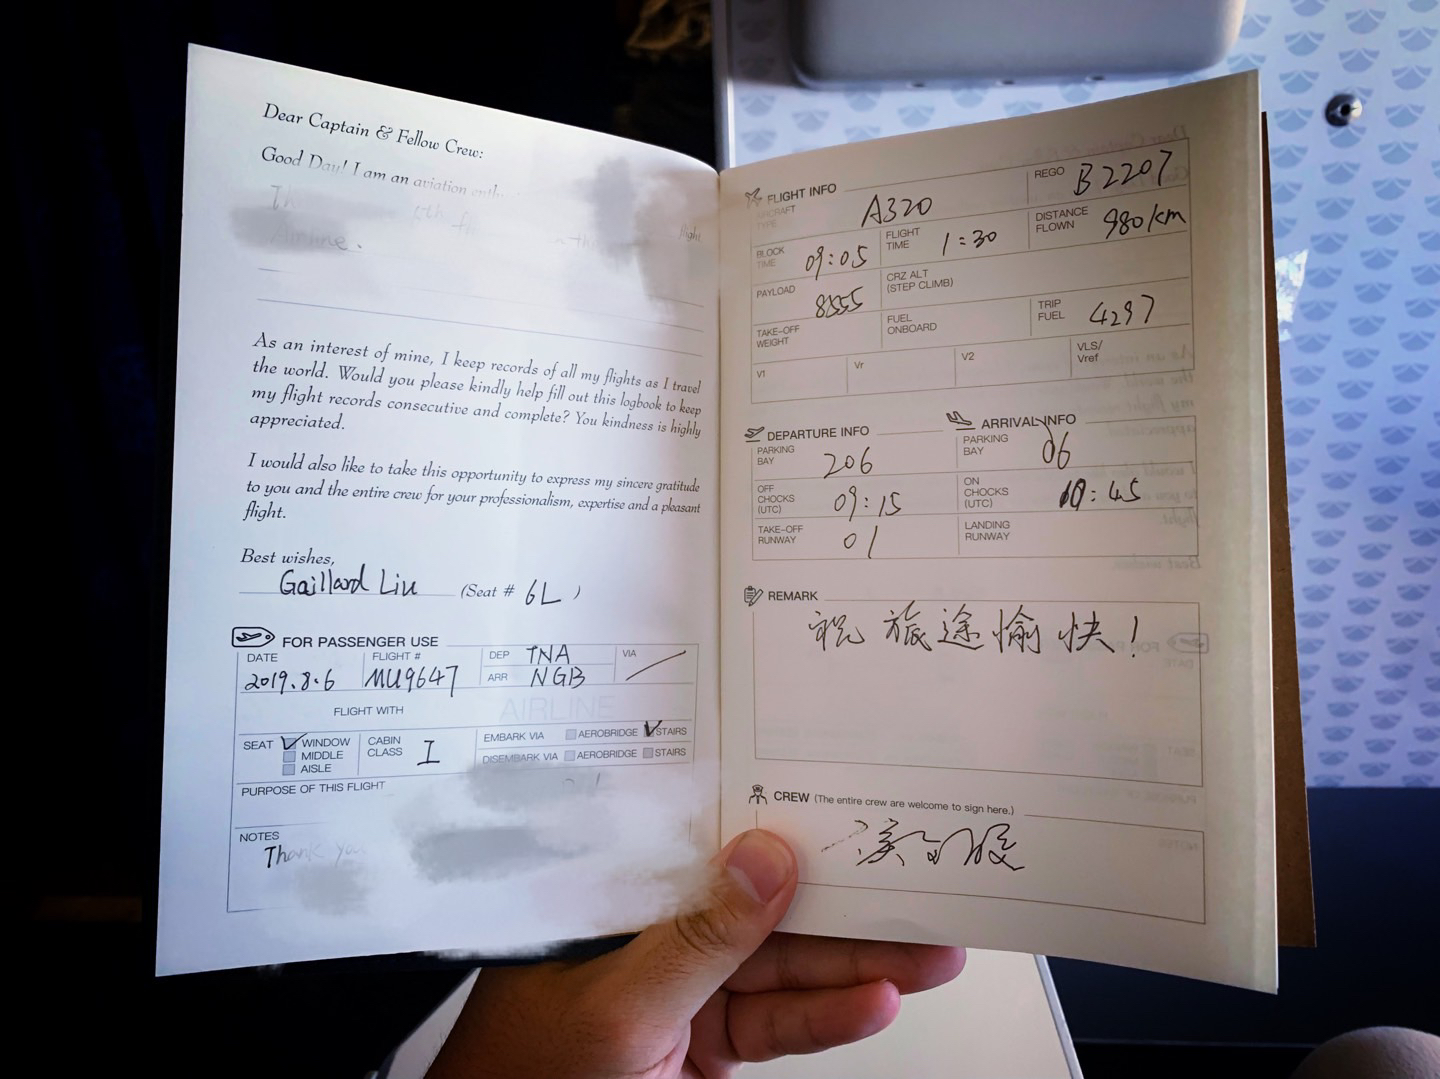 Dear Captain & Fellow Crew:
Good Day! I am an aviation
flight
Airline.
As an interest of mine, I keep records of all my flights as I travel
the world. Would you please kindly help fill out this logbook to keep
my flight records consecutive and complete? You kindness is highly
appreciated.
I would also like to take this opportunity to express my sincere gratitude
to you and the entire crew for your professionalism, expertise and a pleasant
flight.
Best wishes,
Gaillard Liu (Seat # 6L )
FOR PASSENGER USE
DATE 2019.8.6 FLIGHT # MU9647 DEP TNA VIA
ARR NGB
FLIGHT WITH AIRLINE
SEAT WINDOW CABIN CLASS I EMBARK VIA AEROBRIDGE STAIRS
MIDDLE DISEMBARK VIA AEROBRIDGE STAIRS
AISLE
PURPOSE OF THIS FLIGHT
NOTES
Thank
FLIGHT INFO
AIRCRAFT TYPE A320 REGO B2207
BLOCK TIME 09:05 FLIGHT TIME 1:30 DISTANCE FLOWN 980km
PAYLOAD 8555 CRZ ALT (STEP CLIMB)
TAKE-OFF WEIGHT FUEL ONBOARD TRIP FUEL 4297
V1 Vr V2 VLS/ Vref
DEPARTURE INFO ARRIVAL INFO
PARKING BAY 206 PARKING BAY 06
OFF CHOCKS (UTC) 09:15 ON CHOCKS (UTC) 10:45
TAKE-OFF RUNWAY 01 LANDING RUNWAY
REMARK
祝旅途愉快!
CREW (The entire crew are welcome to sign here.)